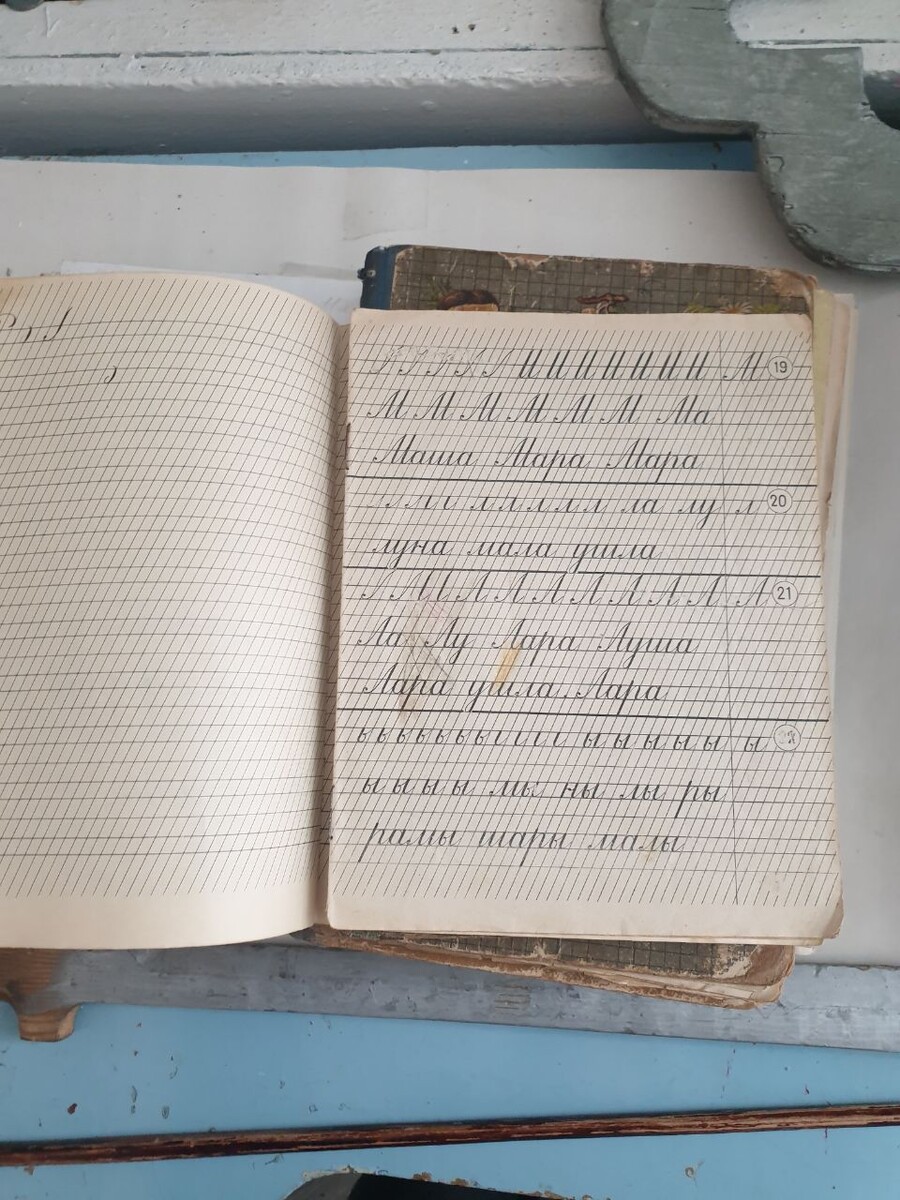 М 19
М М М М М М Ма
Маша Мара Мара
л л л л л ла лу л 20
луна мала ушла
Л Л Л Л Л Л Л Л 21
Ла Лу Лара Луша
Лара ушла. Лара
ь ь ь ь ь ь ь ı ı ı ı ы ы ы ы ы ы
ы ы ы ы мы ны лы ры
рамы шары малы